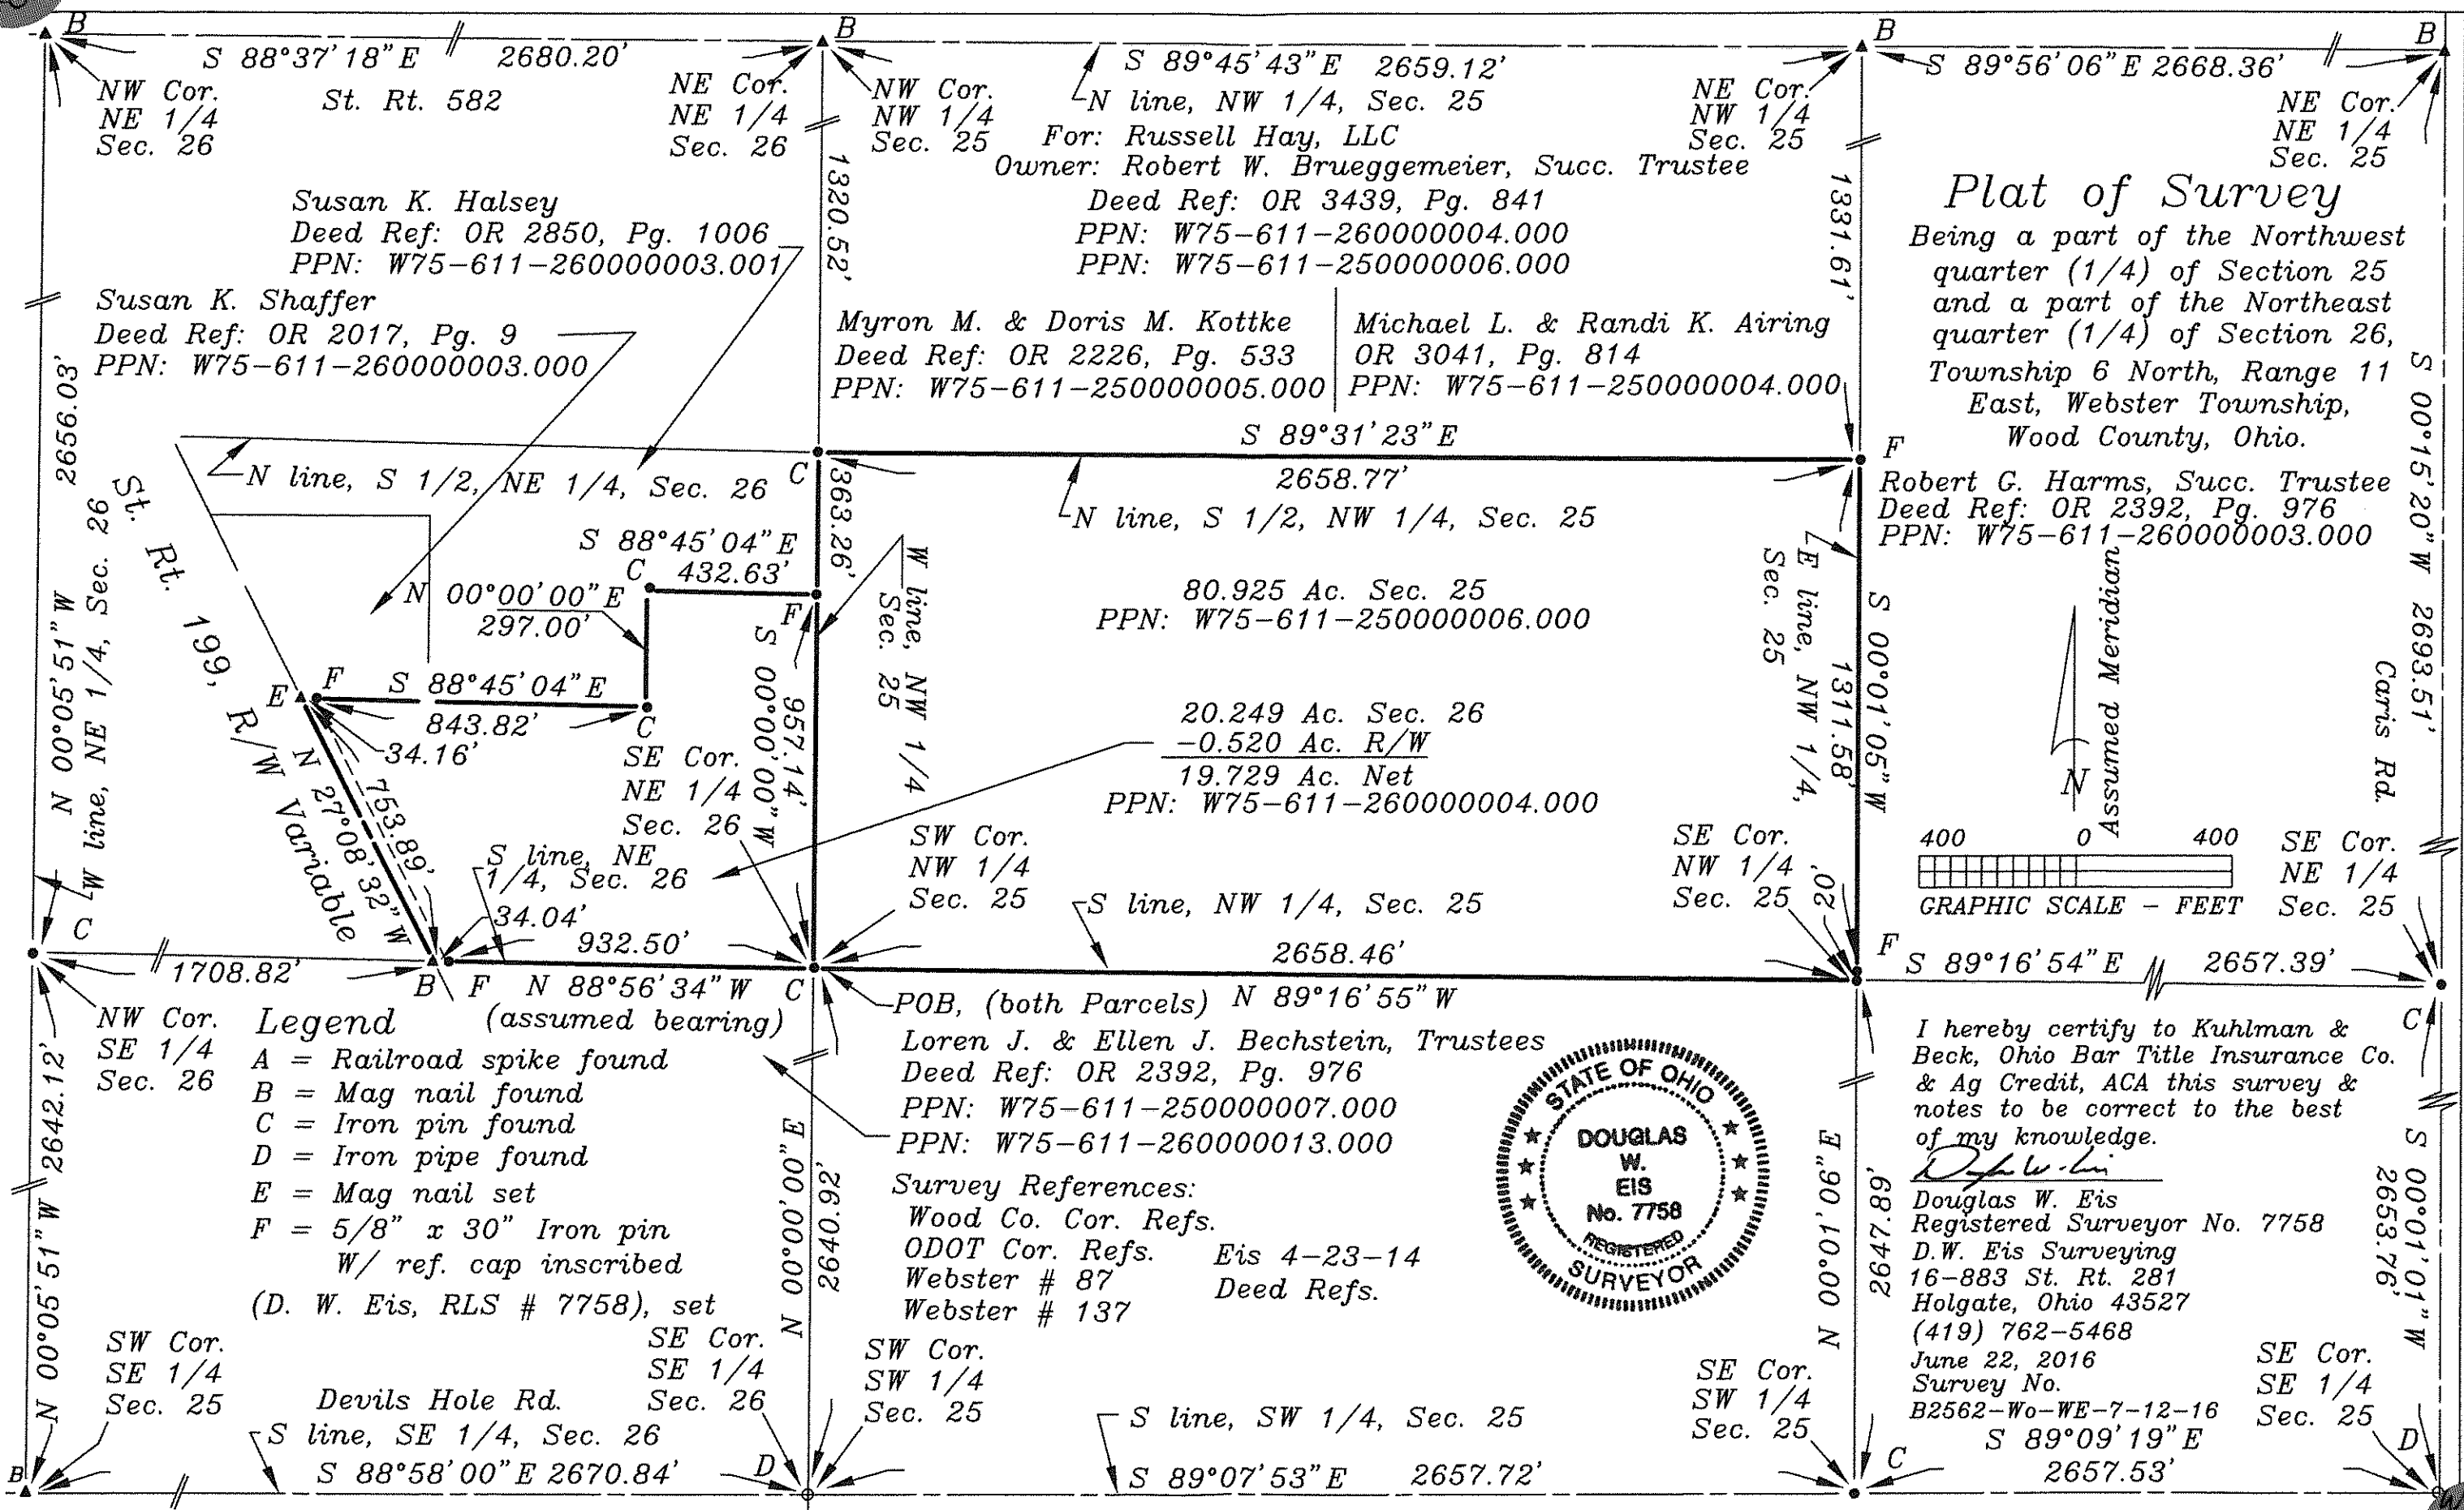 B
B
B
B
S 88°37'18"E 2680.20'
S 89°45'43"E 2659.12'
S 89°56'06"E 2668.36'
NW Cor.
NE 1/4
Sec. 26
St. Rt. 582
NE Cor.
NE 1/4
Sec. 26
NW Cor.
NW 1/4
Sec. 25
N line, NW 1/4, Sec. 25
NE Cor.
NW 1/4
Sec. 25
NE Cor.
NE 1/4
Sec. 25
For: Russell Hay, LLC
Owner: Robert W. Brueggemeier, Succ. Trustee
Deed Ref: OR 3439, Pg. 841
PPN: W75-611-260000004.000
PPN: W75-611-250000006.000
1320.52'
1331.61'
Plat of Survey
Being a part of the Northwest
quarter (1/4) of Section 25
and a part of the Northeast
quarter (1/4) of Section 26,
Township 6 North, Range 11
East, Webster Township,
Wood County, Ohio.
Susan K. Halsey
Deed Ref: OR 2850, Pg. 1006
PPN: W75-611-260000003.001
Susan K. Shaffer
Deed Ref: OR 2017, Pg. 9
PPN: W75-611-260000003.000
Myron M. & Doris M. Kottke
Deed Ref: OR 2226, Pg. 533
PPN: W75-611-250000005.000
Michael L. & Randi K. Airing
OR 3041, Pg. 814
PPN: W75-611-250000004.000
2656.03'
N 00°05'51"W
W line, NE 1/4, Sec. 26
S 89°31'23"E
2658.77'
F
C
N line, S 1/2, NE 1/4, Sec. 26
N line, S 1/2, NW 1/4, Sec. 25
363.26'
Robert G. Harms, Succ. Trustee
Deed Ref: OR 2392, Pg. 976
PPN: W75-611-260000003.000
S 00°15'20"W 2693.51'
Caris Rd.
St. Rt. 199, R/W Variable
S 88°45'04"E
C 432.63'
N 00°00'00"E
297.00'
F
W line, NW 1/4
Sec. 25
80.925 Ac. Sec. 25
PPN: W75-611-250000006.000
E line, NW 1/4,
Sec. 25
S 00°01'05"W
1311.58'
Assumed Meridian
N
E
F
S 88°45'04"E
843.82'
C
34.16'
957.14'
S 00°00'00"W
20.249 Ac. Sec. 26
-0.520 Ac. R/W
19.729 Ac. Net
PPN: W75-611-260000004.000
753.89'
N 27°08'32"W
SE Cor.
NE 1/4
Sec. 26
S line, NE
1/4, Sec. 26
34.04'
932.50'
SW Cor.
NW 1/4
Sec. 25
S line, NW 1/4, Sec. 25
2658.46'
SE Cor.
NW 1/4
Sec. 25
.02'
400 0 400
GRAPHIC SCALE - FEET
SE Cor.
NE 1/4
Sec. 25
C
1708.82'
B F N 88°56'34"W C
(assumed bearing)
POB, (both Parcels) N 89°16'55"W
F
S 89°16'54"E 2657.39'
C
NW Cor.
SE 1/4
Sec. 26
N 00°05'51"W 2642.12'
Legend
A = Railroad spike found
B = Mag nail found
C = Iron pin found
D = Iron pipe found
E = Mag nail set
F = 5/8" x 30" Iron pin
W/ ref. cap inscribed
(D. W. Eis, RLS # 7758), set
Loren J. & Ellen J. Bechstein, Trustees
Deed Ref: OR 2392, Pg. 976
PPN: W75-611-250000007.000
PPN: W75-611-260000013.000
N 00°00'00"E
2640.92'
Survey References:
Wood Co. Cor. Refs.
ODOT Cor. Refs.
Webster # 87
Webster # 137
Eis 4-23-14
Deed Refs.
STATE OF OHIO
DOUGLAS
W.
EIS
No. 7758
REGISTERED
SURVEYOR
N 00°01'06"E
2647.89'
I hereby certify to Kuhlman &
Beck, Ohio Bar Title Insurance Co.
& Ag Credit, ACA this survey &
notes to be correct to the best
of my knowledge.
Douglas W. Eis
Registered Surveyor No. 7758
D.W. Eis Surveying
16-883 St. Rt. 281
Holgate, Ohio 43527
(419) 762-5468
June 22, 2016
Survey No.
B2562-Wo-WE-7-12-16
S 00°01'01"W
2653.76'
SW Cor.
SE 1/4
Sec. 25
Devils Hole Rd.
SE Cor.
SE 1/4
Sec. 26
SW Cor.
SW 1/4
Sec. 25
SE Cor.
SW 1/4
Sec. 25
SE Cor.
SE 1/4
Sec. 25
S line, SE 1/4, Sec. 26
S 88°58'00"E 2670.84'
B
D
S line, SW 1/4, Sec. 25
S 89°07'53"E 2657.72'
C
S 89°09'19"E
2657.53'
D